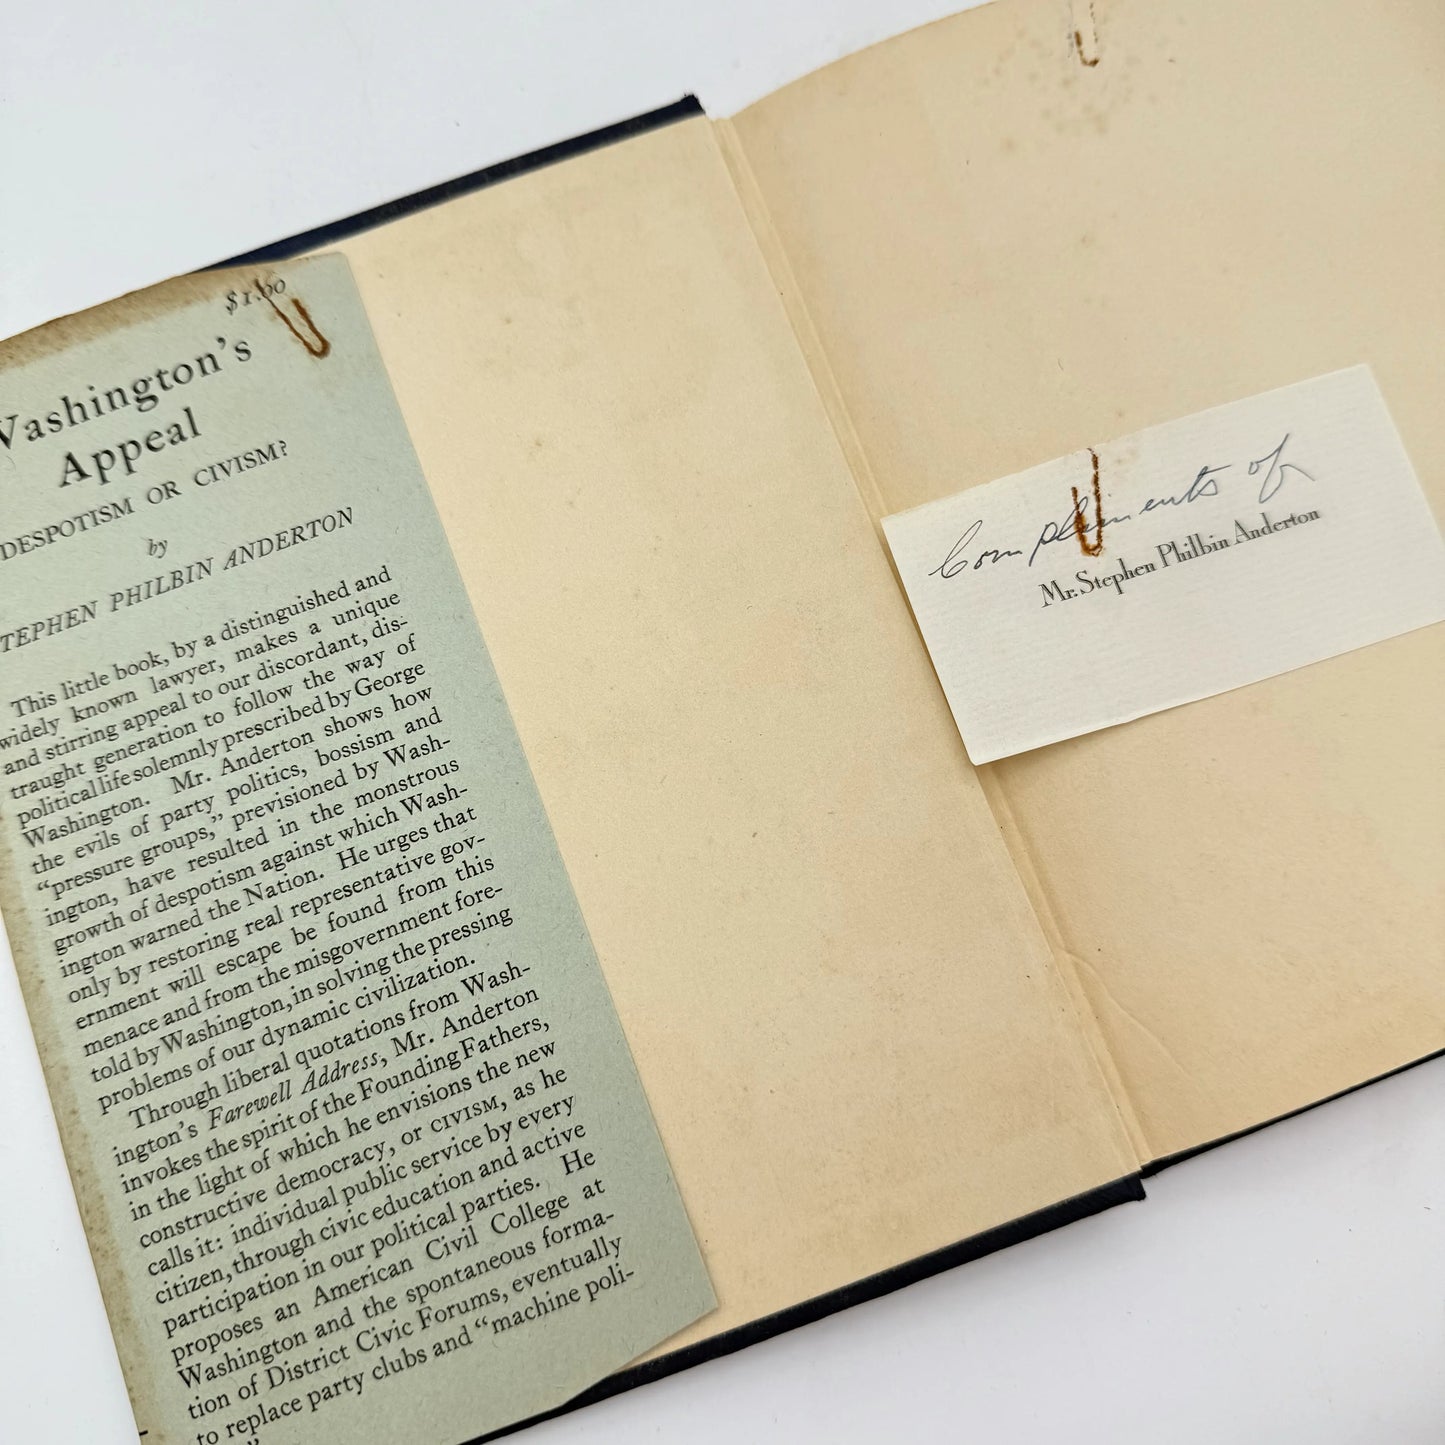 $1.60
Washington's
Appeal
DESPOTISM OR CIVISM?
by
STEPHEN PHILBIN ANDERTON
This little book, by a distinguished and
widely known lawyer, makes a unique
and stirring appeal to our discordant, dis-
traught generation to follow the way of
political life solemnly prescribed by George
Washington. Mr. Anderton shows how
the evils of party politics, bossism and
“pressure groups,” previsioned by Wash-
ington, have resulted in the monstrous
growth of despotism against which Wash-
ington warned the Nation. He urges that
only by restoring real representative gov-
ernment will escape be found from this
menace and from the misgovernment fore-
told by Washington, in solving the pressing
problems of our dynamic civilization.
Through liberal quotations from Wash-
ington's Farewell Address, Mr. Anderton
invokes the spirit of the Founding Fathers,
in the light of which he envisions the new
constructive democracy, or CIVISM, as he
calls it: individual public service by every
citizen, through civic education and active
participation in our political parties. He
proposes an American Civil College at
Washington and the spontaneous forma-
tion of District Civic Forums, eventually
to replace party clubs and “machine poli-
Compliments of
Mr. Stephen Philbin Anderton